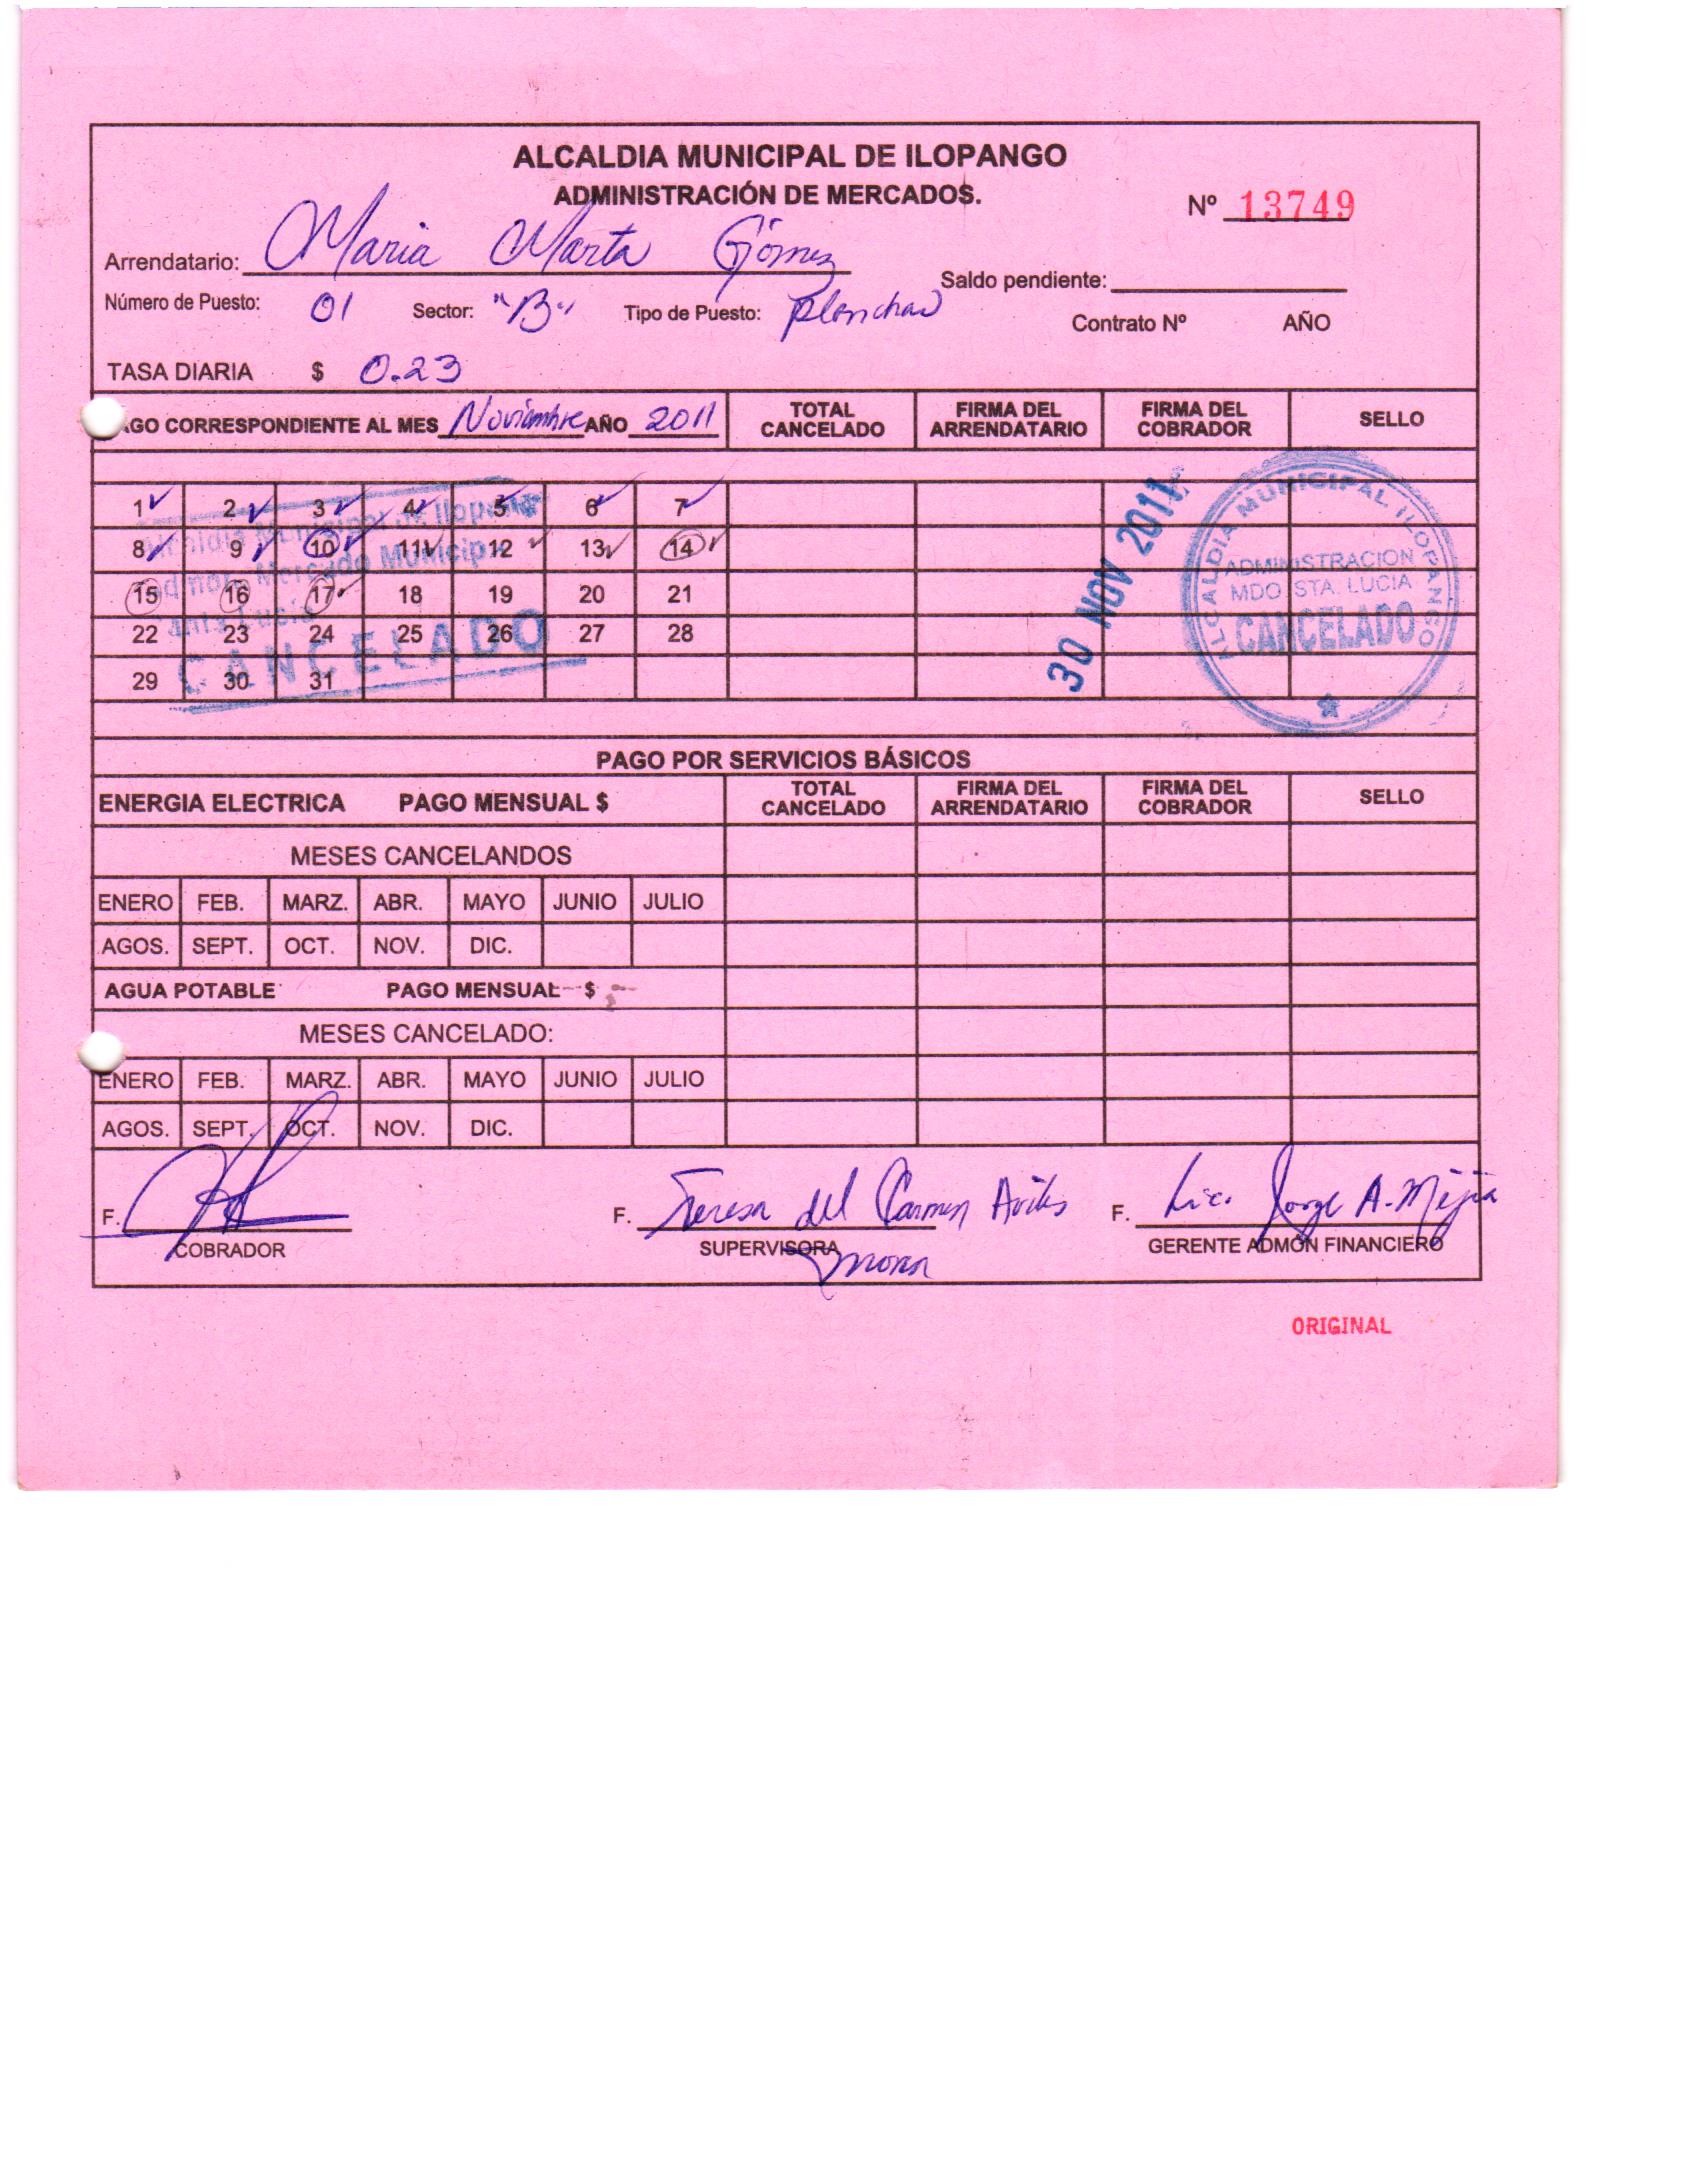 ALCALDIA MUNICIPAL DE ILOPANGO
ADMINISTRACIÓN DE MERCADOS.
Nº 13749
Arrendatario: Maria Marta Gómez
Saldo pendiente:
Número de Puesto: 01 Sector: "B" Tipo de Puesto: planchas
Contrato Nº AÑO
TASA DIARIA $ 0.23
AGO CORRESPONDIENTE AL MES Noviembre AÑO 2011
TOTAL CANCELADO
FIRMA DEL ARRENDATARIO
FIRMA DEL COBRADOR
SELLO
1 2 3 4 5 6 7
8 9 10 11 12 13 14
15 16 17 18 19 20 21
22 23 24 25 26 27 28
29 30 31
Alcaldia Municipal de Ilopango
Admon. Mercado Municip
Santa Lucia
CANCELADO
30 NOV 2011
ALCALDIA MUNICIPAL ILOPANGO
ADMINISTRACION
MDO. STA. LUCIA
CANCELADO
PAGO POR SERVICIOS BÁSICOS
ENERGIA ELECTRICA PAGO MENSUAL $
TOTAL CANCELADO
FIRMA DEL ARRENDATARIO
FIRMA DEL COBRADOR
SELLO
MESES CANCELANDOS
ENERO FEB. MARZ. ABR. MAYO JUNIO JULIO
AGOS. SEPT. OCT. NOV. DIC.
AGUA POTABLE PAGO MENSUAL $
MESES CANCELADO:
ENERO FEB. MARZ. ABR. MAYO JUNIO JULIO
AGOS. SEPT. OCT. NOV. DIC.
F. F. Teresa del Carmen Aviles F. Lic. Jorge A. Mejia
COBRADOR SUPERVISORA GERENTE ADMÓN FINANCIERO
Moran
ORIGINAL